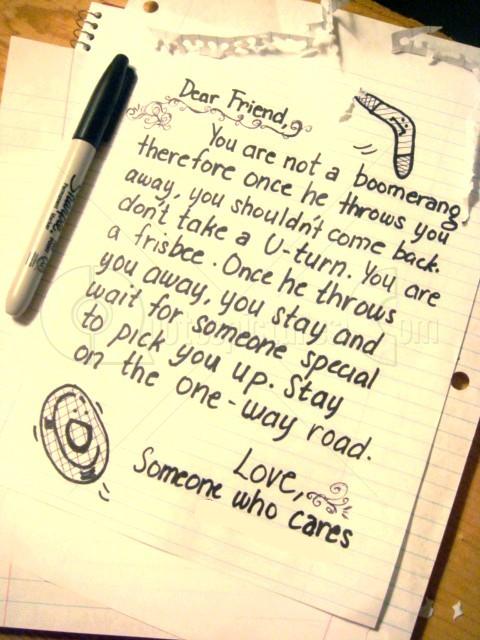 Dear Friend,
You are not a boomerang
therefore once he throws you
away, you shouldn't come back.
don't take a U-turn. You are
a frisbee. Once he throws
you away, you stay and
wait for someone special
to pick you up. Stay
on the one-way road.
Love,
Someone who cares
Sharpie